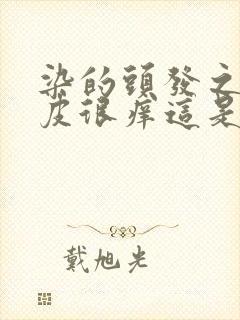 染的頭發之
皮很痒這是
戴旭光